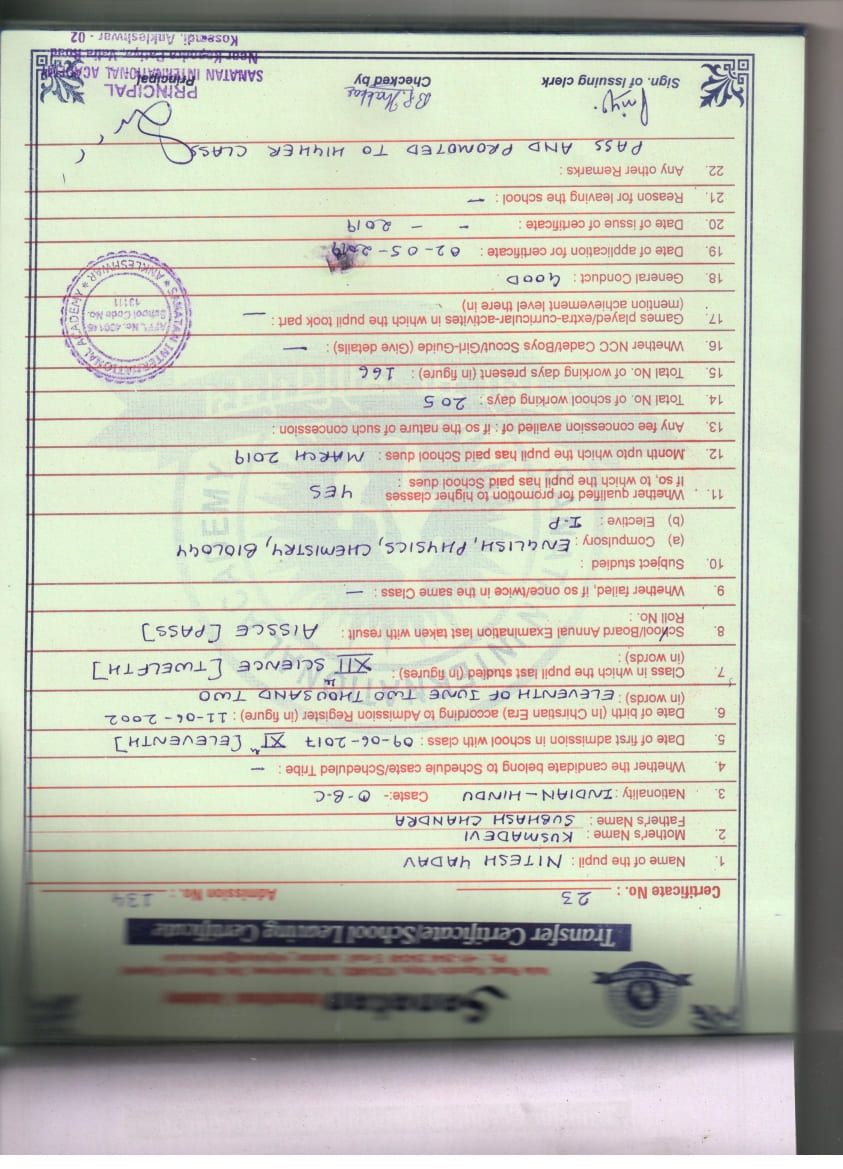 Sanatan International Academy
Transfer Certificate/School Leaving Certificate
Certificate No. : 23 Admission No. : 134
1. Name of the pupil : NITESH YADAV
2. Mother's Name : KUSMADEVI
Father's Name : SUBHASH CHANDRA
3. Nationality : INDIAN-HINDU Caste:- O.B.C
4. Whether the candidate belong to Schedule caste/Scheduled Tribe : –
5. Date of first admission in school with class : 09-06-2017 XI th [ELEVENTH]
6. Date of birth (In Chirstian Era) according to Admission Register (in figure) : 11-06-2002
(in words) : ELEVENTH OF JUNE TWO THOUSAND TWO
7. Class in which the pupil last studied (in figures) : XII th SCIENCE [TWELFTH]
(in words) :
8. School/Board Annual Examination last taken with result : AISSCE [PASS]
Roll No. :
9. Whether failed, if so once/twice in the same Class : –
10. Subject studied :
(a) Compulsory : ENGLISH, PHYSICS, CHEMISTRY, BIOLOGY
(b) Elective : I.P
11. Whether qualified for promotion to higher classes YES
If so, to which the pupil has paid School dues :
12. Month upto which the pupil has paid School dues : MARCH 2019
13. Any fee concession availed of : if so the nature of such concession :
14. Total No. of school working days : 205
15. Total No. of working days present (in figure) : 166
16. Whether NCC Cadet/Boys Scout/Girl-Guide (Give details) : –
17. Games played/extra-curricular-activites in which the pupil took part : –
(mention achievement level there in)
18. General Conduct : GOOD
19. Date of application for certificate : 02-05-2019
20. Date of issue of certificate : - - 2019
21. Reason for leaving the school : –
22. Any other Remarks :
PASS AND PROMOTED TO HIGHER CLASS
SANATAN INTERNATIONAL ACADEMY * ANKLESHWAR *
AFF'L No. 430146
School Code No.
13111
Sign. of issuing clerk Checked by Principal
PRINCIPAL
SANATAN INTERNATIONAL ACADEMY
Kosamdi, Ankleshwar - 02